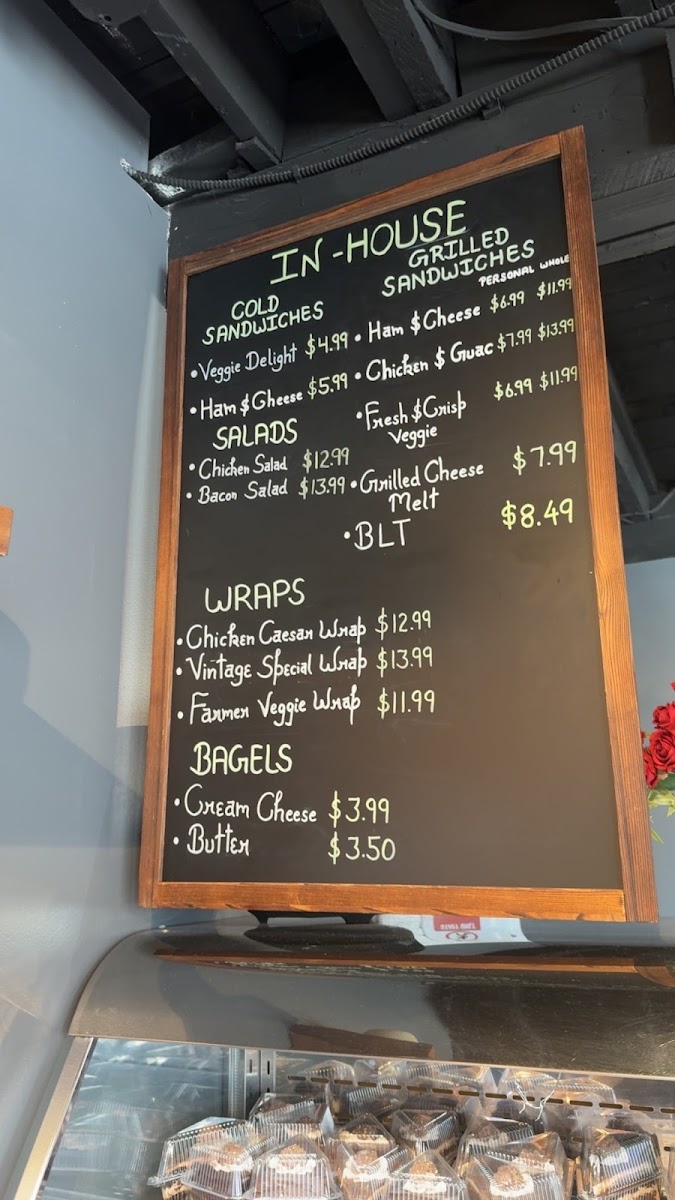 IN-HOUSE
COLD
SANDWICHES
• Veggie Delight $4.99
• Ham & Cheese $5.99
SALADS
• Chicken Salad $12.99
• Bacon Salad $13.99
GRILLED
SANDWICHES
PERSONAL WHOLE
• Ham & Cheese $6.99 $11.99
• Chicken & Guac $7.99 $13.99
• Fresh & Crisp $6.99 $11.99
Veggie
• Grilled Cheese $7.99
Melt
• BLT $8.49
WRAPS
• Chicken Caesar Wrap $12.99
• Vintage Special Wrap $13.99
• Farmer Veggie Wrap $11.99
BAGELS
• Cream Cheese $3.99
• Butter $3.50